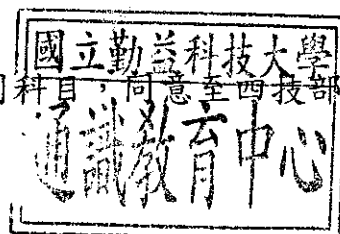 國立勤益科技大學
科目，同意至四技部
通識教育中心